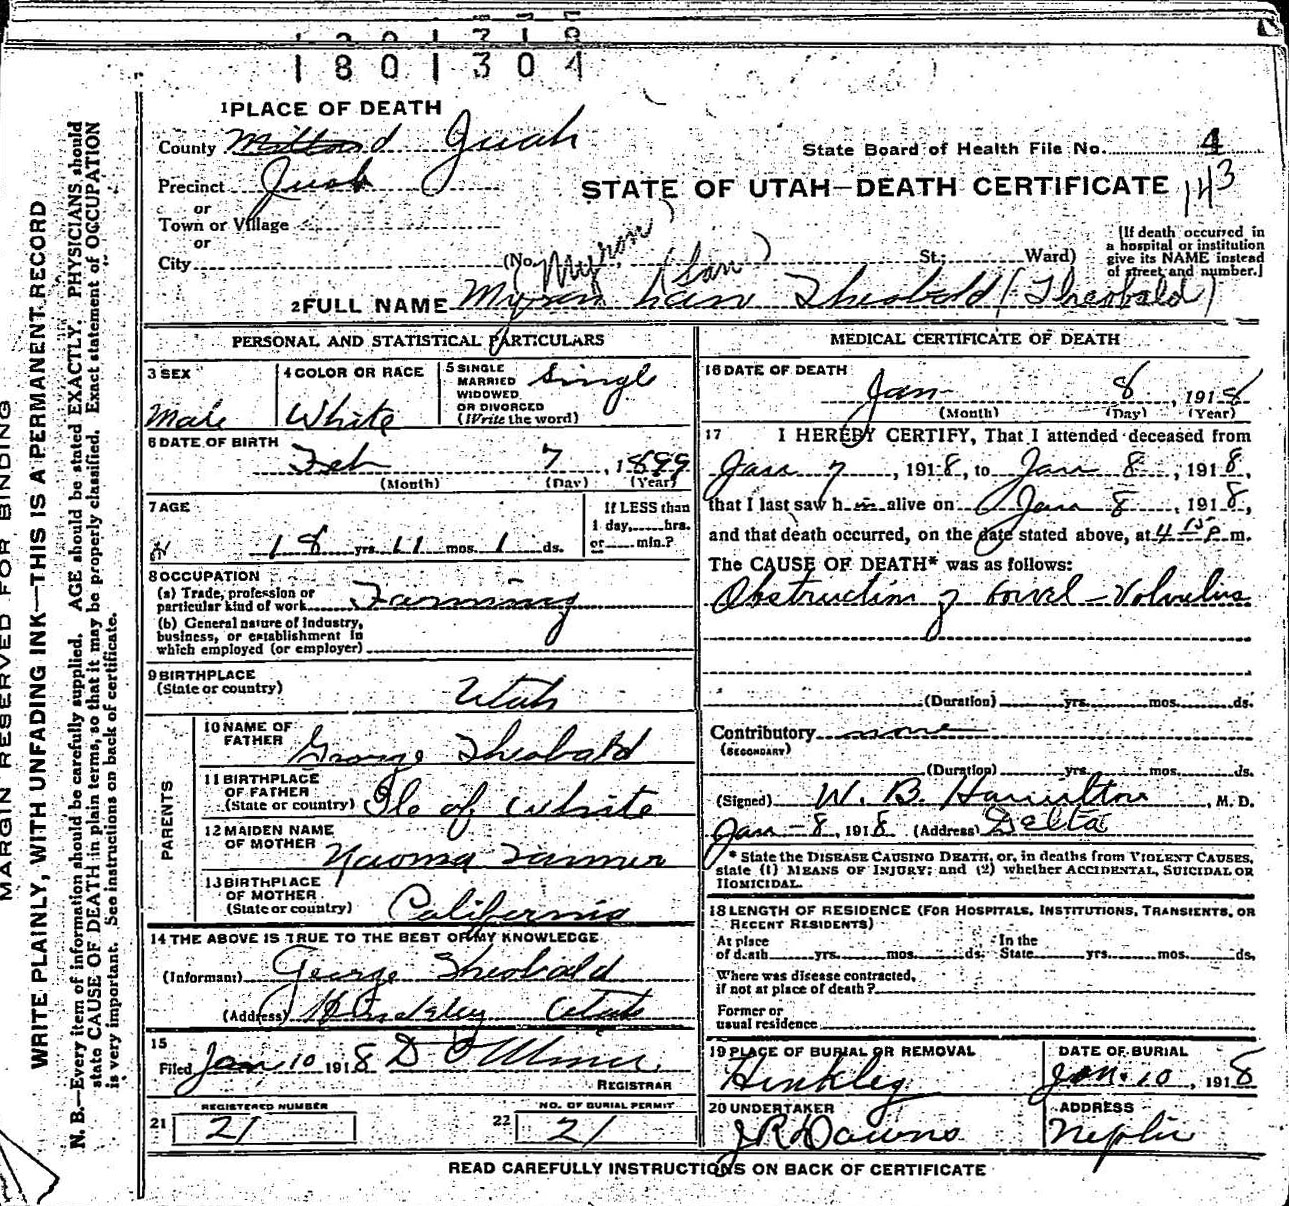 1801304
1 PLACE OF DEATH
County Millard Juab
State Board of Health File No. 4
Precinct Juab
STATE OF UTAH—DEATH CERTIFICATE 143
or
Town or Village
or
City (No. St.; Ward)
[If death occurred in a hospital or institution give its NAME instead of street and number.]
(Myron) (Lan)
2 FULL NAME Myron Theobald (Theobald)
PERSONAL AND STATISTICAL PARTICULARS
3 SEX
Male
4 COLOR OR RACE
White
5 SINGLE MARRIED WIDOWED OR DIVORCED (Write the word)
Single
6 DATE OF BIRTH
Feb 7, 1899
(Month) (Day) (Year)
7 AGE
18 yrs. 11 mos. 1 ds.
If LESS than
1 day, hrs.
or min.?
8 OCCUPATION
(a) Trade, profession or
particular kind of work Farming
(b) General nature of industry,
business, or establishment in
which employed (or employer)
9 BIRTHPLACE
(State or country)
Utah
PARENTS
10 NAME OF
FATHER George Theobald
11 BIRTHPLACE
OF FATHER
(State or country) Ile of White
12 MAIDEN NAME
OF MOTHER
13 BIRTHPLACE
OF MOTHER
(State or country) California
14 THE ABOVE IS TRUE TO THE BEST OF MY KNOWLEDGE
(Informant) George Theobald
(Address) Hinckley Utah
15
Filed Jan 10 1918
REGISTRAR
21 REGISTERED NUMBER
21
22 NO. OF BURIAL PERMIT
21
MEDICAL CERTIFICATE OF DEATH
16 DATE OF DEATH
Jan 8, 1918
(Month) (Day) (Year)
17 I HEREBY CERTIFY, That I attended deceased from
Jan 7, 1918, to Jan 8, 1918,
that I last saw h im alive on Jan 8, 1918,
and that death occurred, on the date stated above, at 4 15 P m.
The CAUSE OF DEATH* was as follows:
Obstruction of bowel - Volvulus
(Duration) yrs. mos. ds.
Contributory none
(SECONDARY)
(Duration) yrs. mos. ds.
(Signed) W. B. Hamilton, M. D.
Jan - 8, 1918 (Address) Delta
* State the DISEASE CAUSING DEATH, or, in deaths from VIOLENT CAUSES,
state (1) MEANS OF INJURY; and (2) whether ACCIDENTAL, SUICIDAL OR
HOMICIDAL.
18 LENGTH OF RESIDENCE (FOR HOSPITALS, INSTITUTIONS, TRANSIENTS, OR
RECENT RESIDENTS)
At place In the
of death yrs. mos. ds. State yrs. mos. ds.
Where was disease contracted,
if not at place of death?
Former or
usual residence
19 PLACE OF BURIAL OR REMOVAL
Hinkley
DATE OF BURIAL
Jan. 10, 1918
20 UNDERTAKER
Downs
ADDRESS
Nephi
READ CAREFULLY INSTRUCTIONS ON BACK OF CERTIFICATE
MARGIN RESERVED FOR BINDING
WRITE PLAINLY, WITH UNFADING INK—THIS IS A PERMANENT RECORD
N. B.—Every item of information should be carefully supplied. AGE should be stated EXACTLY. PHYSICIANS should
state CAUSE OF DEATH in plain terms, so that it may be properly classified. Exact statement of OCCUPATION
is very important. See instructions on back of certificate.